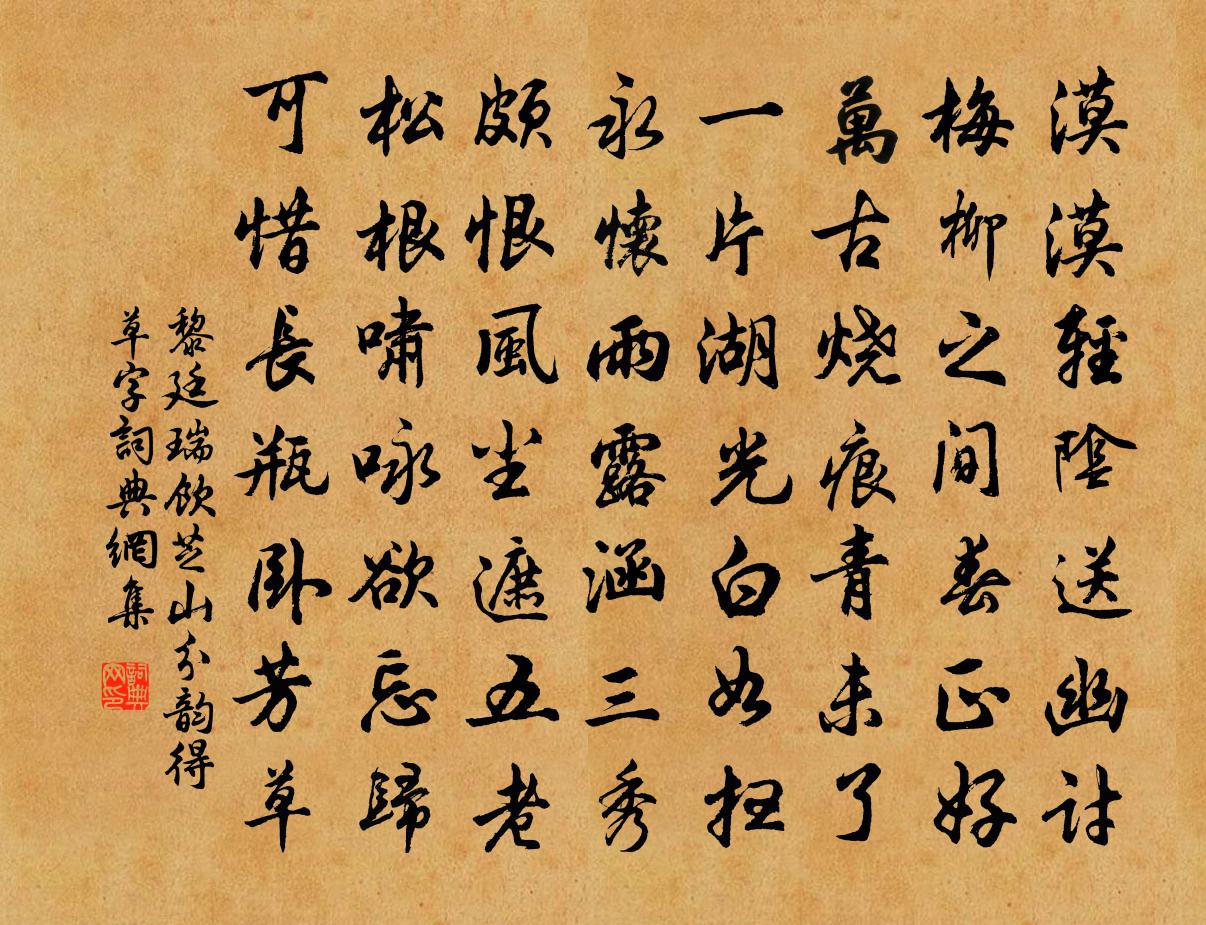 漠漠輕陰送幽討
梅柳之間春正好
萬古燒痕青未了
一片湖光白如扫
永懷雨露涵三秀
頗恨風尘遮五老
松根啸咏欲忘歸
可惜長瓶卧芳草
黎廷瑞飲芝山分韵得
草字詞典網集
詞典网印